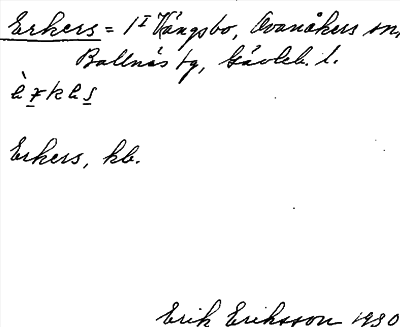 Erkers = 1 I Vängsbo, Ovanåkers sn,
Bollnäs tg, Gävleb. l.
è r k e s
Erkers, kb.
Erik Eriksson 1930